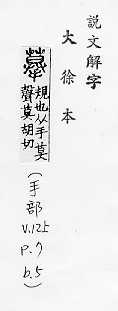 說文解字
大徐本
摹
規也从手莫
聲莫胡切
(手部
V.12上
P.7
b.5)